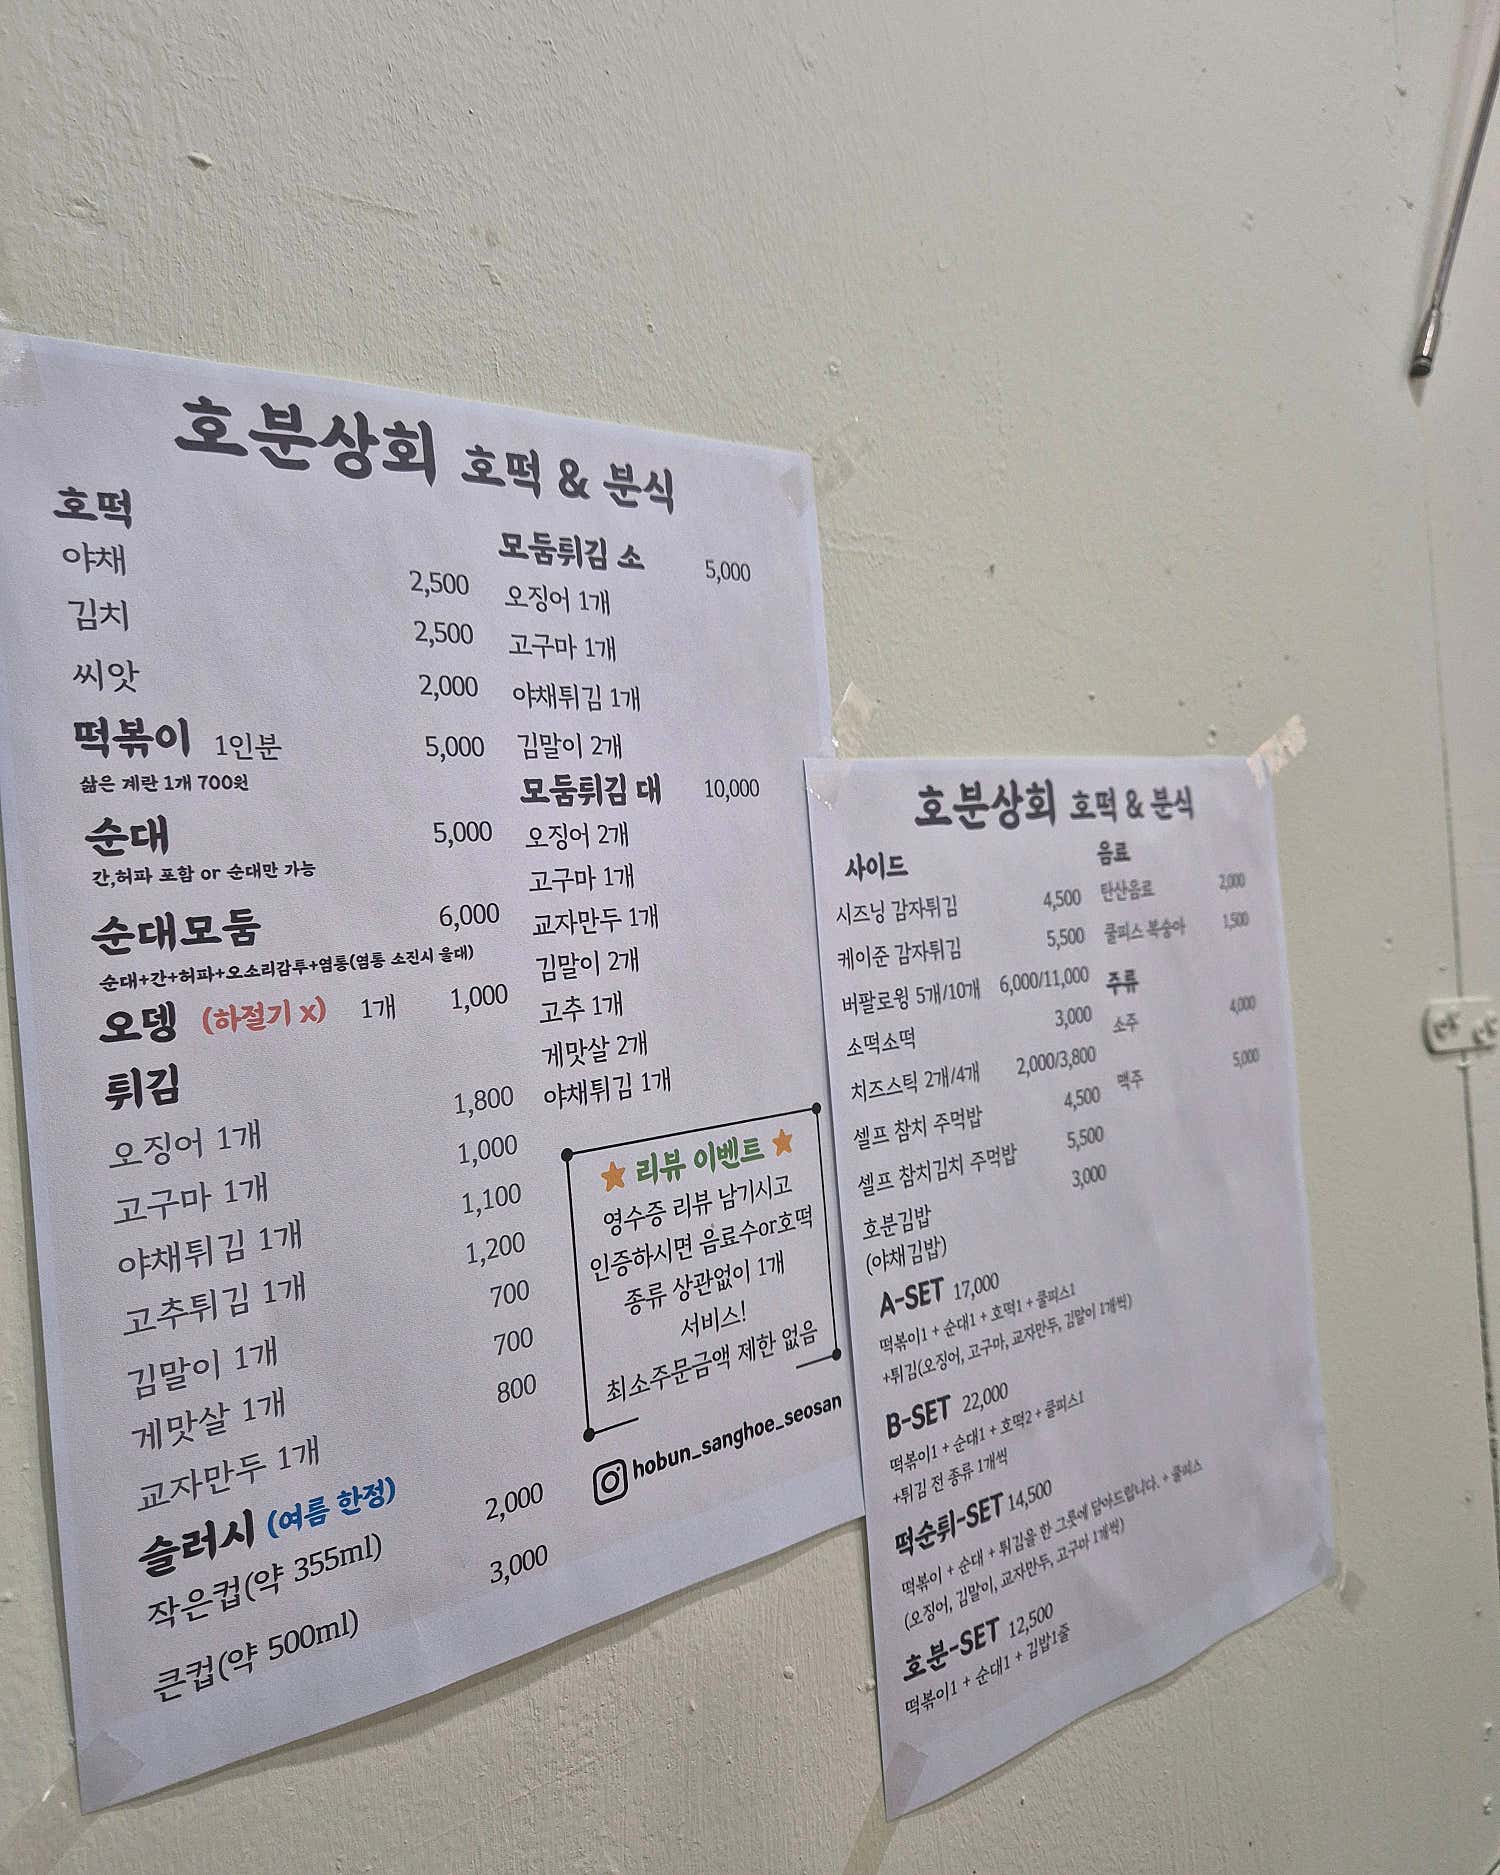 호분상회 호떡 & 분식
호떡
야채 2,500
김치 2,500
씨앗 2,000
떡볶이 1인분 5,000
삶은 계란 1개 700원
순대 5,000
간,허파 포함 or 순대만 가능
순대모둠 6,000
순대+간+허파+오소리감투+염통(염통 소진시 울대)
오뎅 (하절기 x) 1개 1,000
튀김
오징어 1개 1,800
고구마 1개 1,000
야채튀김 1개 1,100
고추튀김 1개 1,200
김말이 1개 700
게맛살 1개 700
교자만두 1개 800
슬러시 (여름 한정)
작은컵(약 355ml) 2,000
큰컵(약 500ml) 3,000
모둠튀김 소 5,000
오징어 1개
고구마 1개
야채튀김 1개
김말이 2개
모둠튀김 대 10,000
오징어 2개
고구마 1개
교자만두 1개
김말이 2개
고추 1개
게맛살 2개
야채튀김 1개
리뷰 이벤트
영수증 리뷰 남기시고
인증하시면 음료수or호떡
종류 상관없이 1개
서비스!
최소주문금액 제한 없음
hobun_sanghoe_seosan
호분상회 호떡 & 분식
사이드
시즈닝 감자튀김 4,500
케이준 감자튀김 5,500
버팔로윙 5개/10개 6,000/11,000
소떡소떡 3,000
치즈스틱 2개/4개 2,000/3,800
셀프 참치 주먹밥 4,500
셀프 참치김치 주먹밥 5,500
호분김밥 3,000
(야채김밥)
음료
탄산음료 2,000
쿨피스 복숭아 1,500
주류
소주 4,000
맥주 5,000
A-SET 17,000
떡볶이1 + 순대1 + 호떡1 + 쿨피스1
+튀김(오징어, 고구마, 교자만두, 김말이 1개씩)
B-SET 22,000
떡볶이1 + 순대1 + 호떡2 + 쿨피스1
+튀김 전 종류 1개씩
떡순튀-SET 14,500
떡볶이 + 순대 + 튀김을 한 그릇에 담아드립니다. + 쿨피스
(오징어, 김말이, 교자만두, 고구마 1개씩)
호분-SET 12,500
떡볶이1 + 순대1 + 김밥1줄